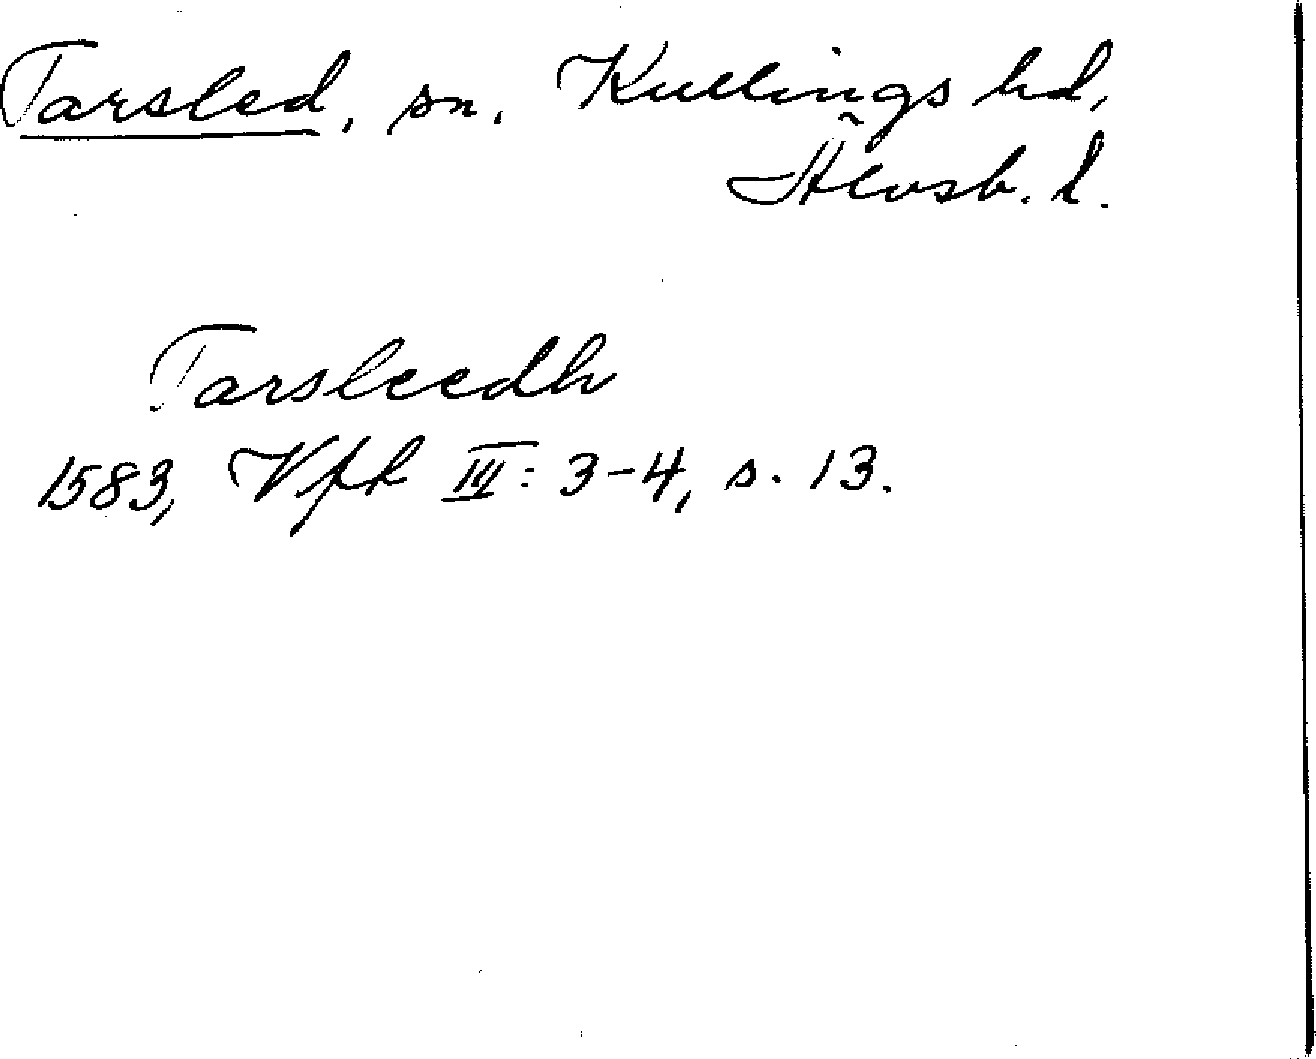 Tarsled, sn. Kullings hd,
Älvsb. l.
Tarsleedh
1583, Vfk III: 3-4, s. 13.